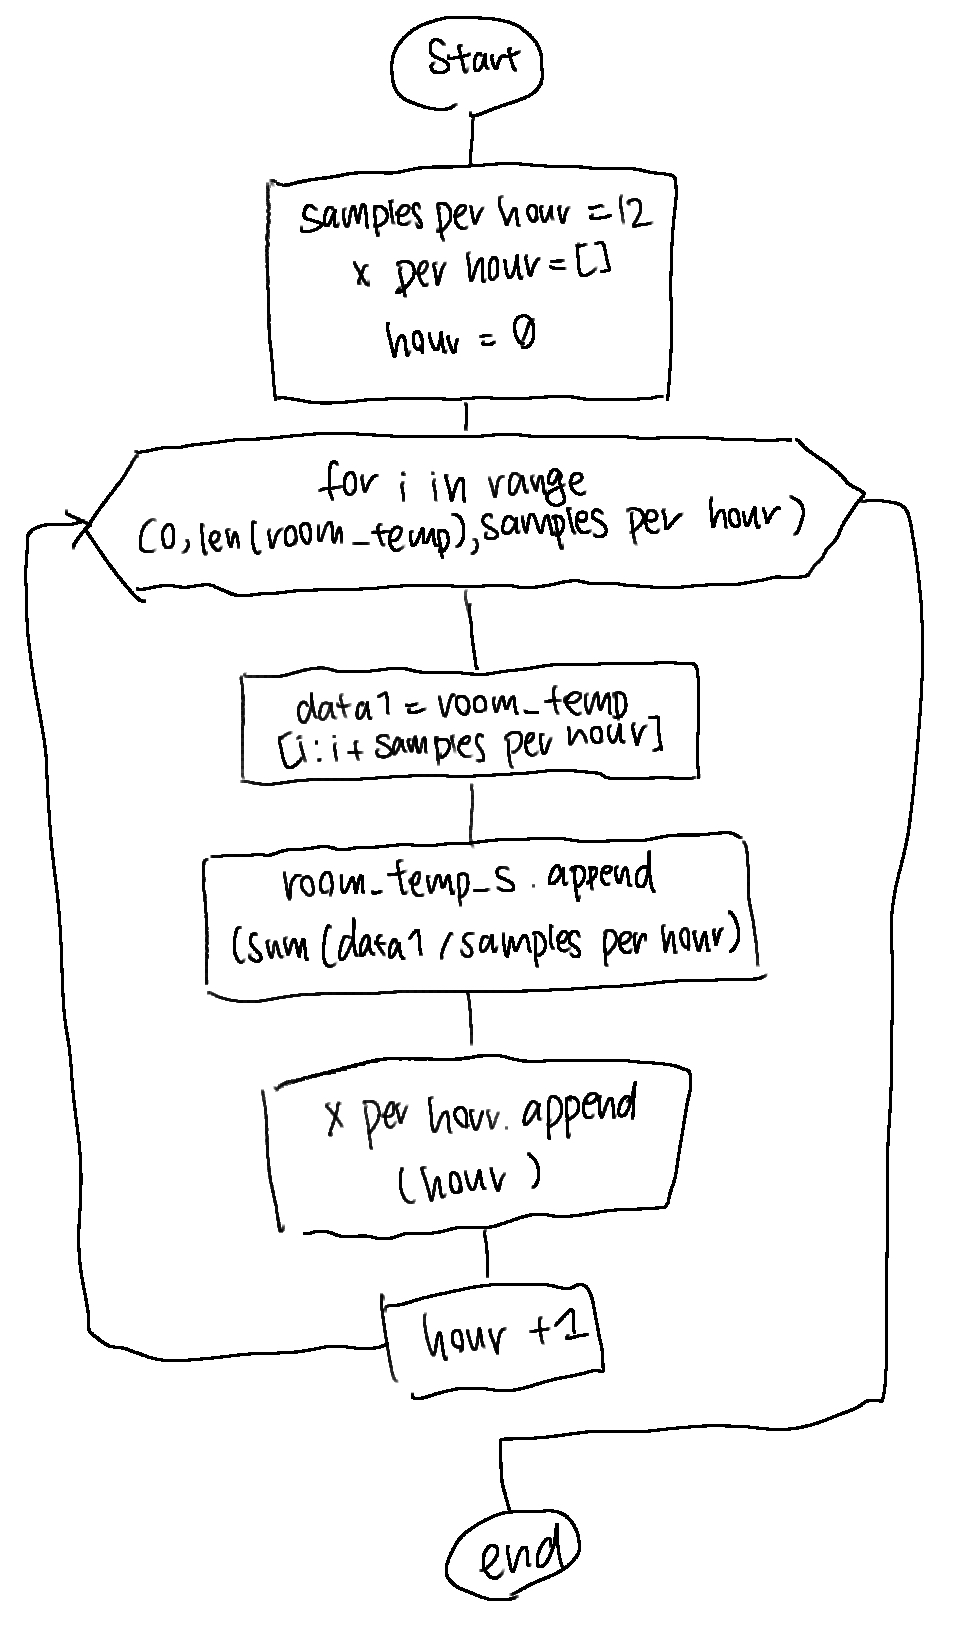 Start
samples per hour = 12
x per hour = []
hour = 0
for i in range
(0, len(room_temp), samples per hour)
data1 = room_temp
[i : i + samples per hour]
room_temp_s . append
(sum (data1 / samples per hour)
x per hour. append
(hour)
hour +1
end